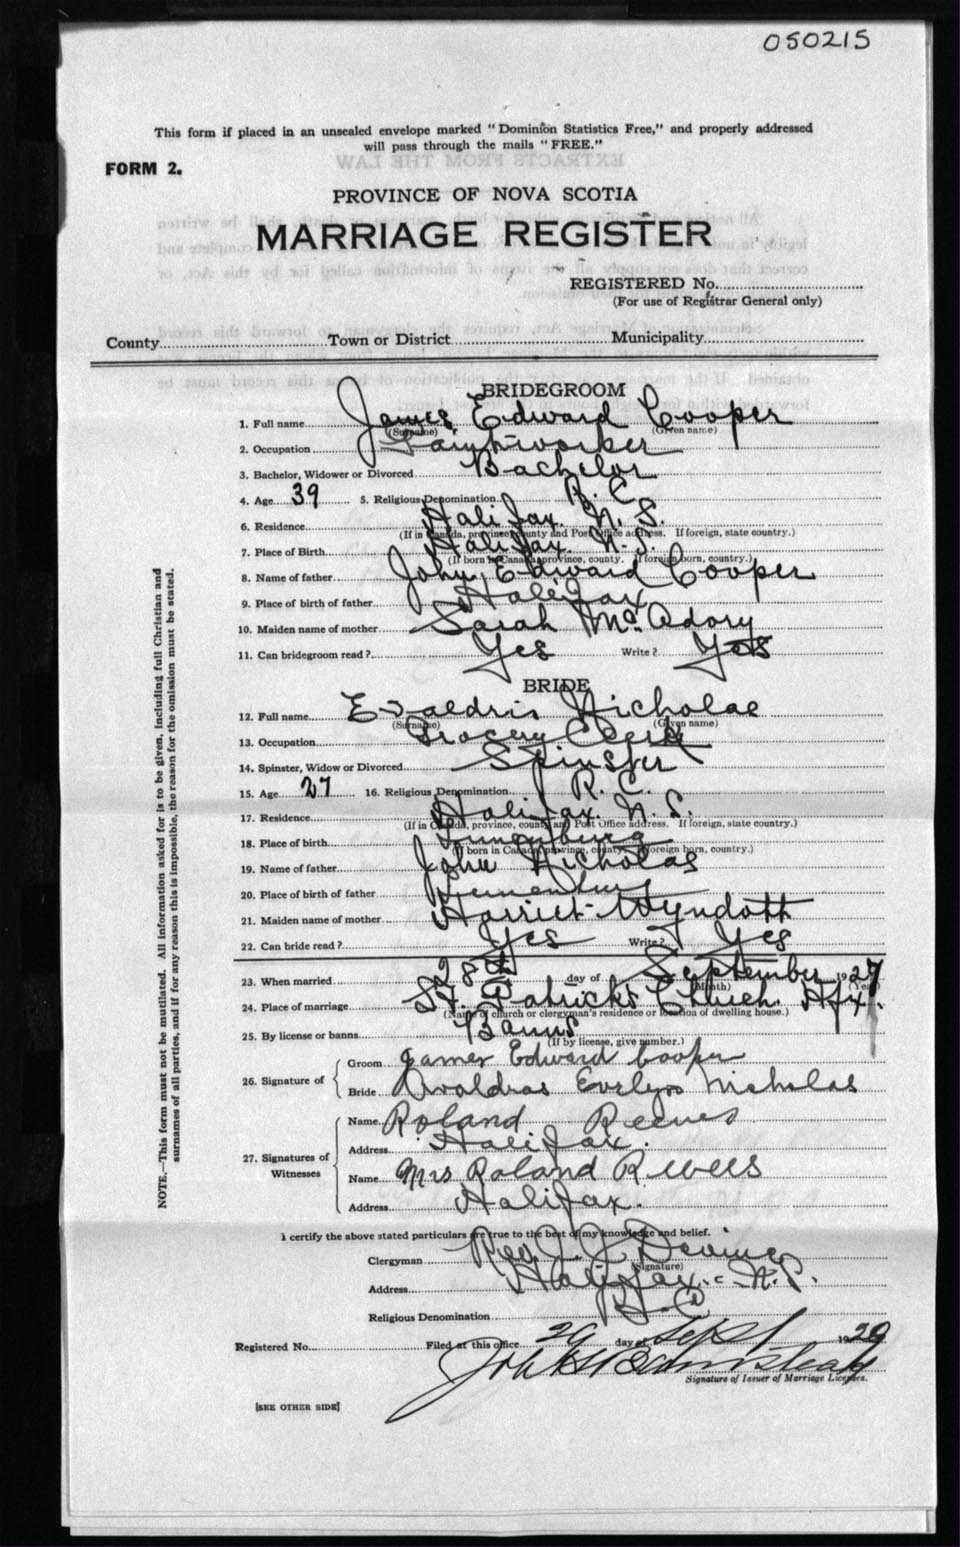 050215
This form if placed in an unsealed envelope marked "Dominion Statistics Free," and properly addressed
will pass through the mails "FREE."
FORM 2.
PROVINCE OF NOVA SCOTIA
MARRIAGE REGISTER
REGISTERED No.
(For use of Registrar General only)
County Town or District Municipality
BRIDEGROOM
1. Full name James Edward Cooper
(Surname) (Given name)
2. Occupation
3. Bachelor, Widower or Divorced Bachelor
4. Age 39 5. Religious Denomination R.C.
6. Residence Halifax. N.S.
(If in Canada, province, county and Post Office address. If foreign, state country.)
7. Place of Birth Halifax. N.S.
(If born in Canada, province, county. If foreign born, country.)
8. Name of father John Edward Cooper
9. Place of birth of father Halifax
10. Maiden name of mother Sarah McAdory
11. Can bridegroom read? Yes Write? Yes
BRIDE
12. Full name Nicholae
(Surname) (Given name)
13. Occupation Grocery Clerk
14. Spinster, Widow or Divorced Spinster
15. Age 27 16. Religious Denomination R.C.
17. Residence Halifax. N.S.
(If in Canada, province, county and Post Office address. If foreign, state country.)
18. Place of birth Lunenburg
(If born in Canada, province, county. If foreign born, country.)
19. Name of father John Nicholas
20. Place of birth of father
21. Maiden name of mother Harriet
22. Can bride read? Yes Write? Yes
23. When married 28th day of September 1927
(Month) (Year)
24. Place of marriage St. Patricks Church. Hfx.
(Name of church or clergyman's residence or location of dwelling house.)
25. By license or banns Banns
(If by license, give number.)
26. Signature of Groom James Edward Cooper
Bride Evelyn Nicholas
27. Signatures of Witnesses Name Roland Reeves
Address Halifax.
Name Mrs Roland Reeves
Address Halifax.
I certify the above stated particulars are true to the best of my knowledge and belief.
Clergyman Rev. J. J. Devine
(Signature)
Address Halifax. N.S.
Religious Denomination R.C.
Registered No. Filed at this office 29 day of Sept 1929
Signature of Issuer of Marriage Licenses.
[SEE OTHER SIDE]
NOTE.—This form must not be mutilated. All information asked for is to be given, including full Christian and
surnames of all parties, and if for any reason this is impossible, the reason for the omission must be stated.